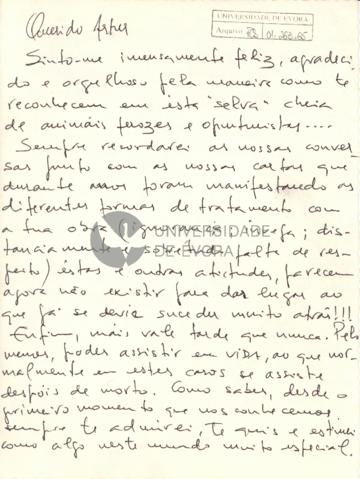 UNIVERSIDADE DE ÉVORA
Arquivo
Querido Artur
Sinto-me imensamente feliz, agradeci
do e orgulhoso pela maneira como te
reconhecem em esta "selva" cheia
de animáis ferozes e oportunistas....
Sempre recordarei as nossas conver
sas junto com as nossas cartas que
durante anos foram manifestando as
diferentes formas de tratamento com
a tua obra (ignorancia; ; dis-
tanciamento e sobretudo falta de res-
peito) éstas e outras atitudes, parecem
agora não existir para dar lugar ao
que já se devia suceder muito atrás!!!
Enfim, máis vale tarde que nunca. Pelo
menos, poder assistir em vida, ao que nor-
malmente em estes casos se assiste
despóis de morto. Como sabes, desde o
primeiro momento que nos conhecemos
sempre te admirei, te quis e estimei
como algo neste mundo muito especial.
UNIVERSIDADE
DE ÉVORA